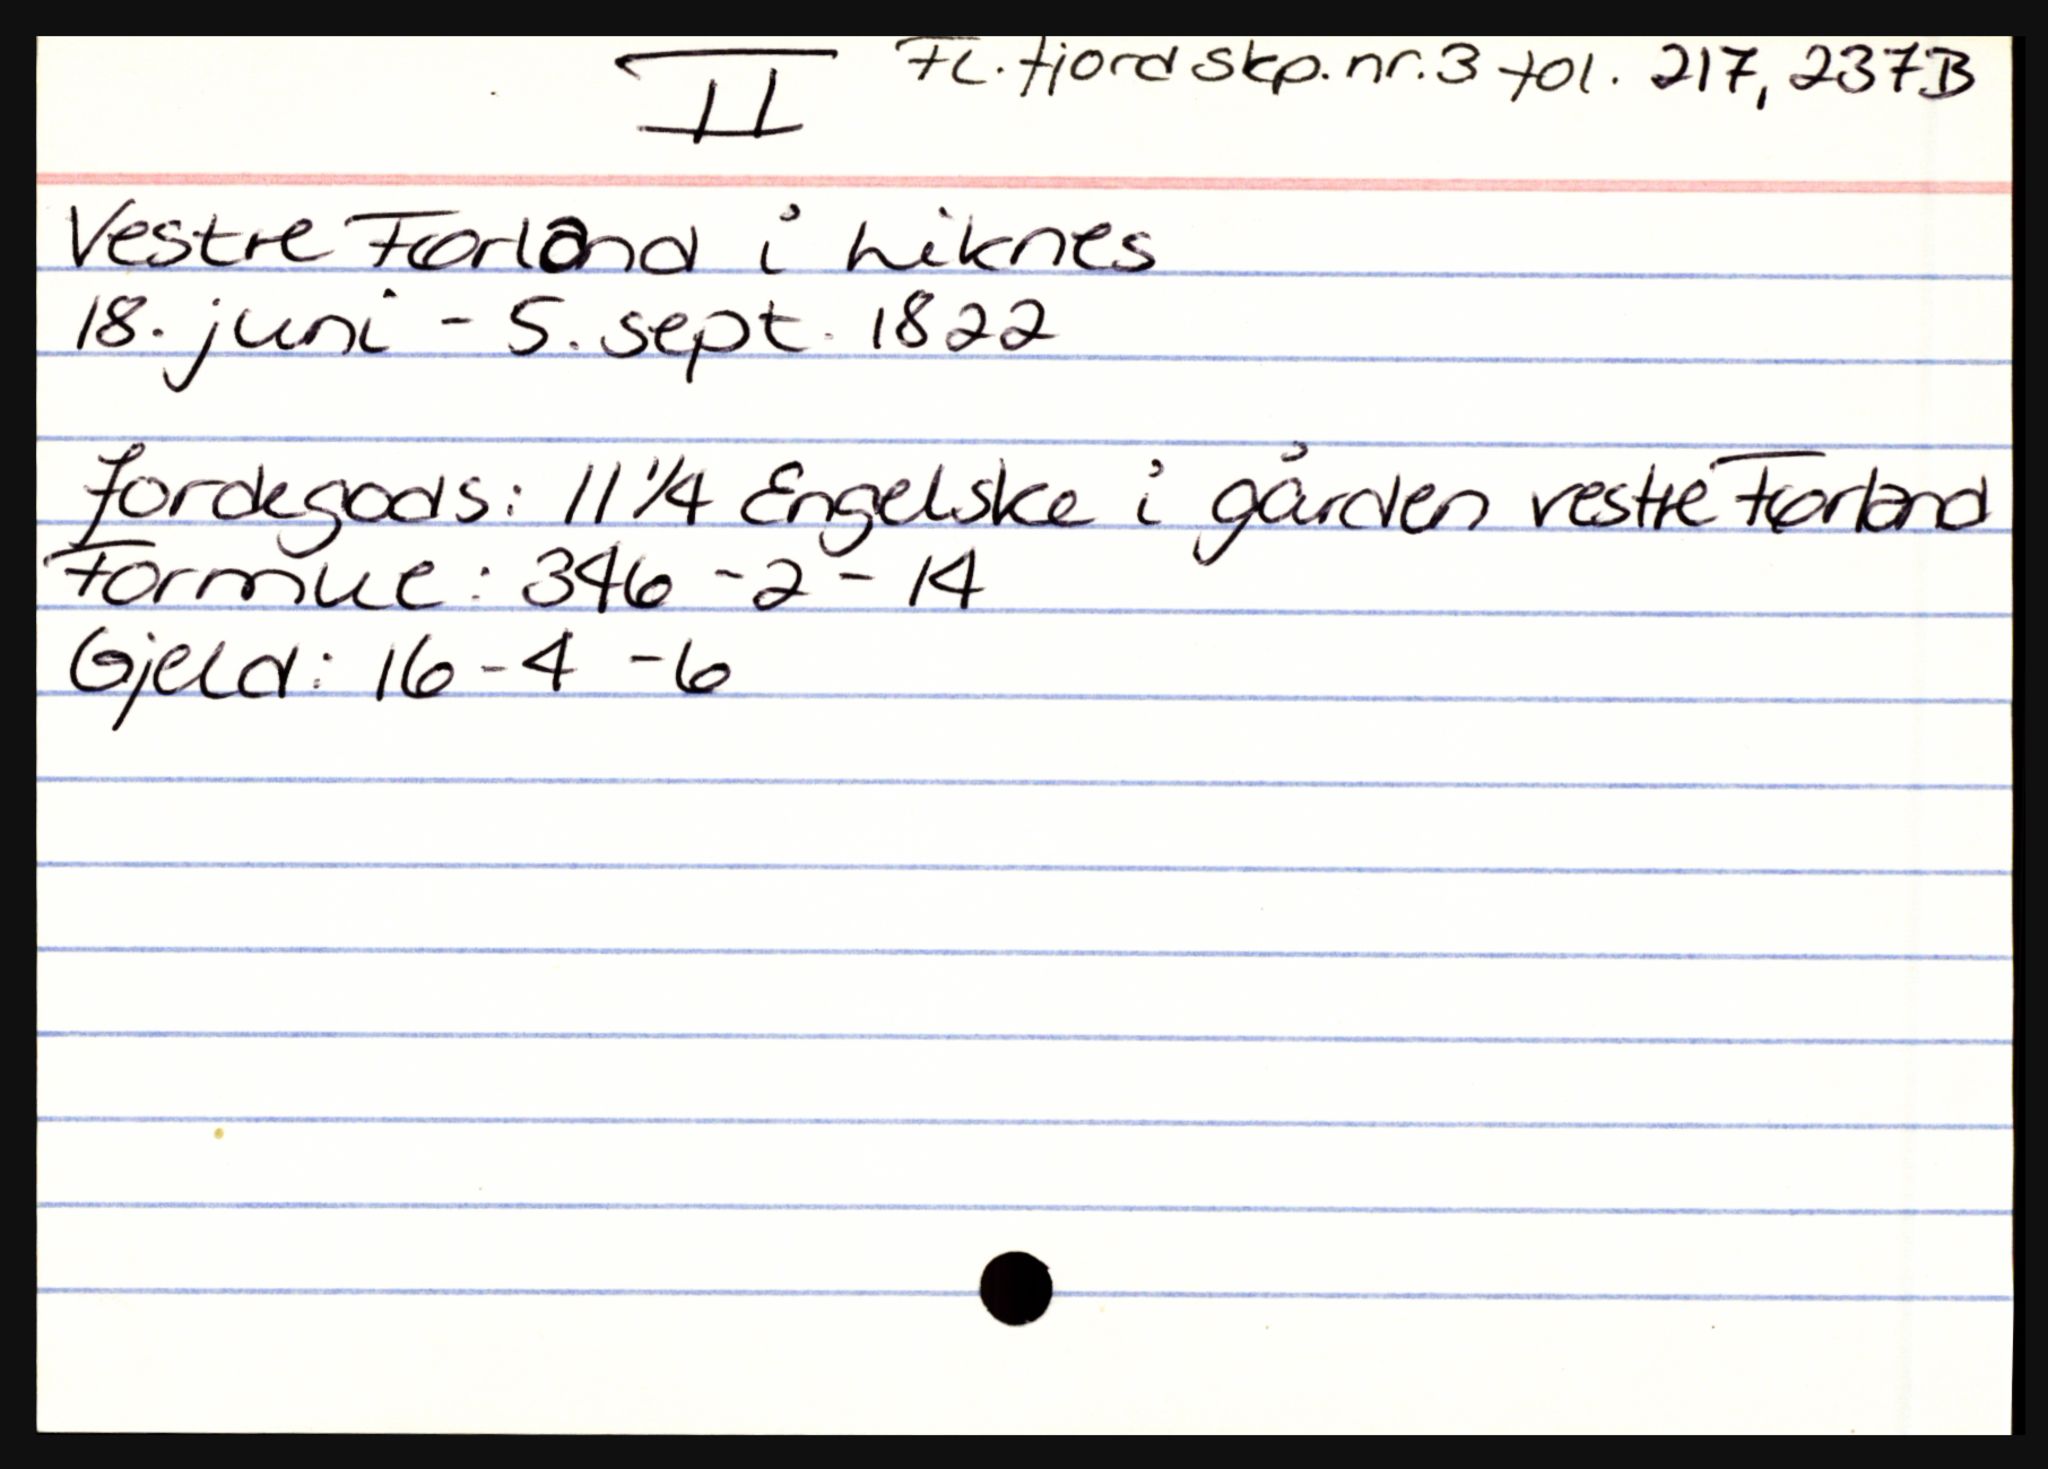 II Fl. fjord skp. nr. 3 fol. 217, 237B
Vestre Førland i Liknes
18. juni - 5. sept. 1822
Jordegods: 11 1/4 Engelske i gården vestre Førland
Formue: 346 - 2 - 14
Gjeld: 16 - 4 - 6